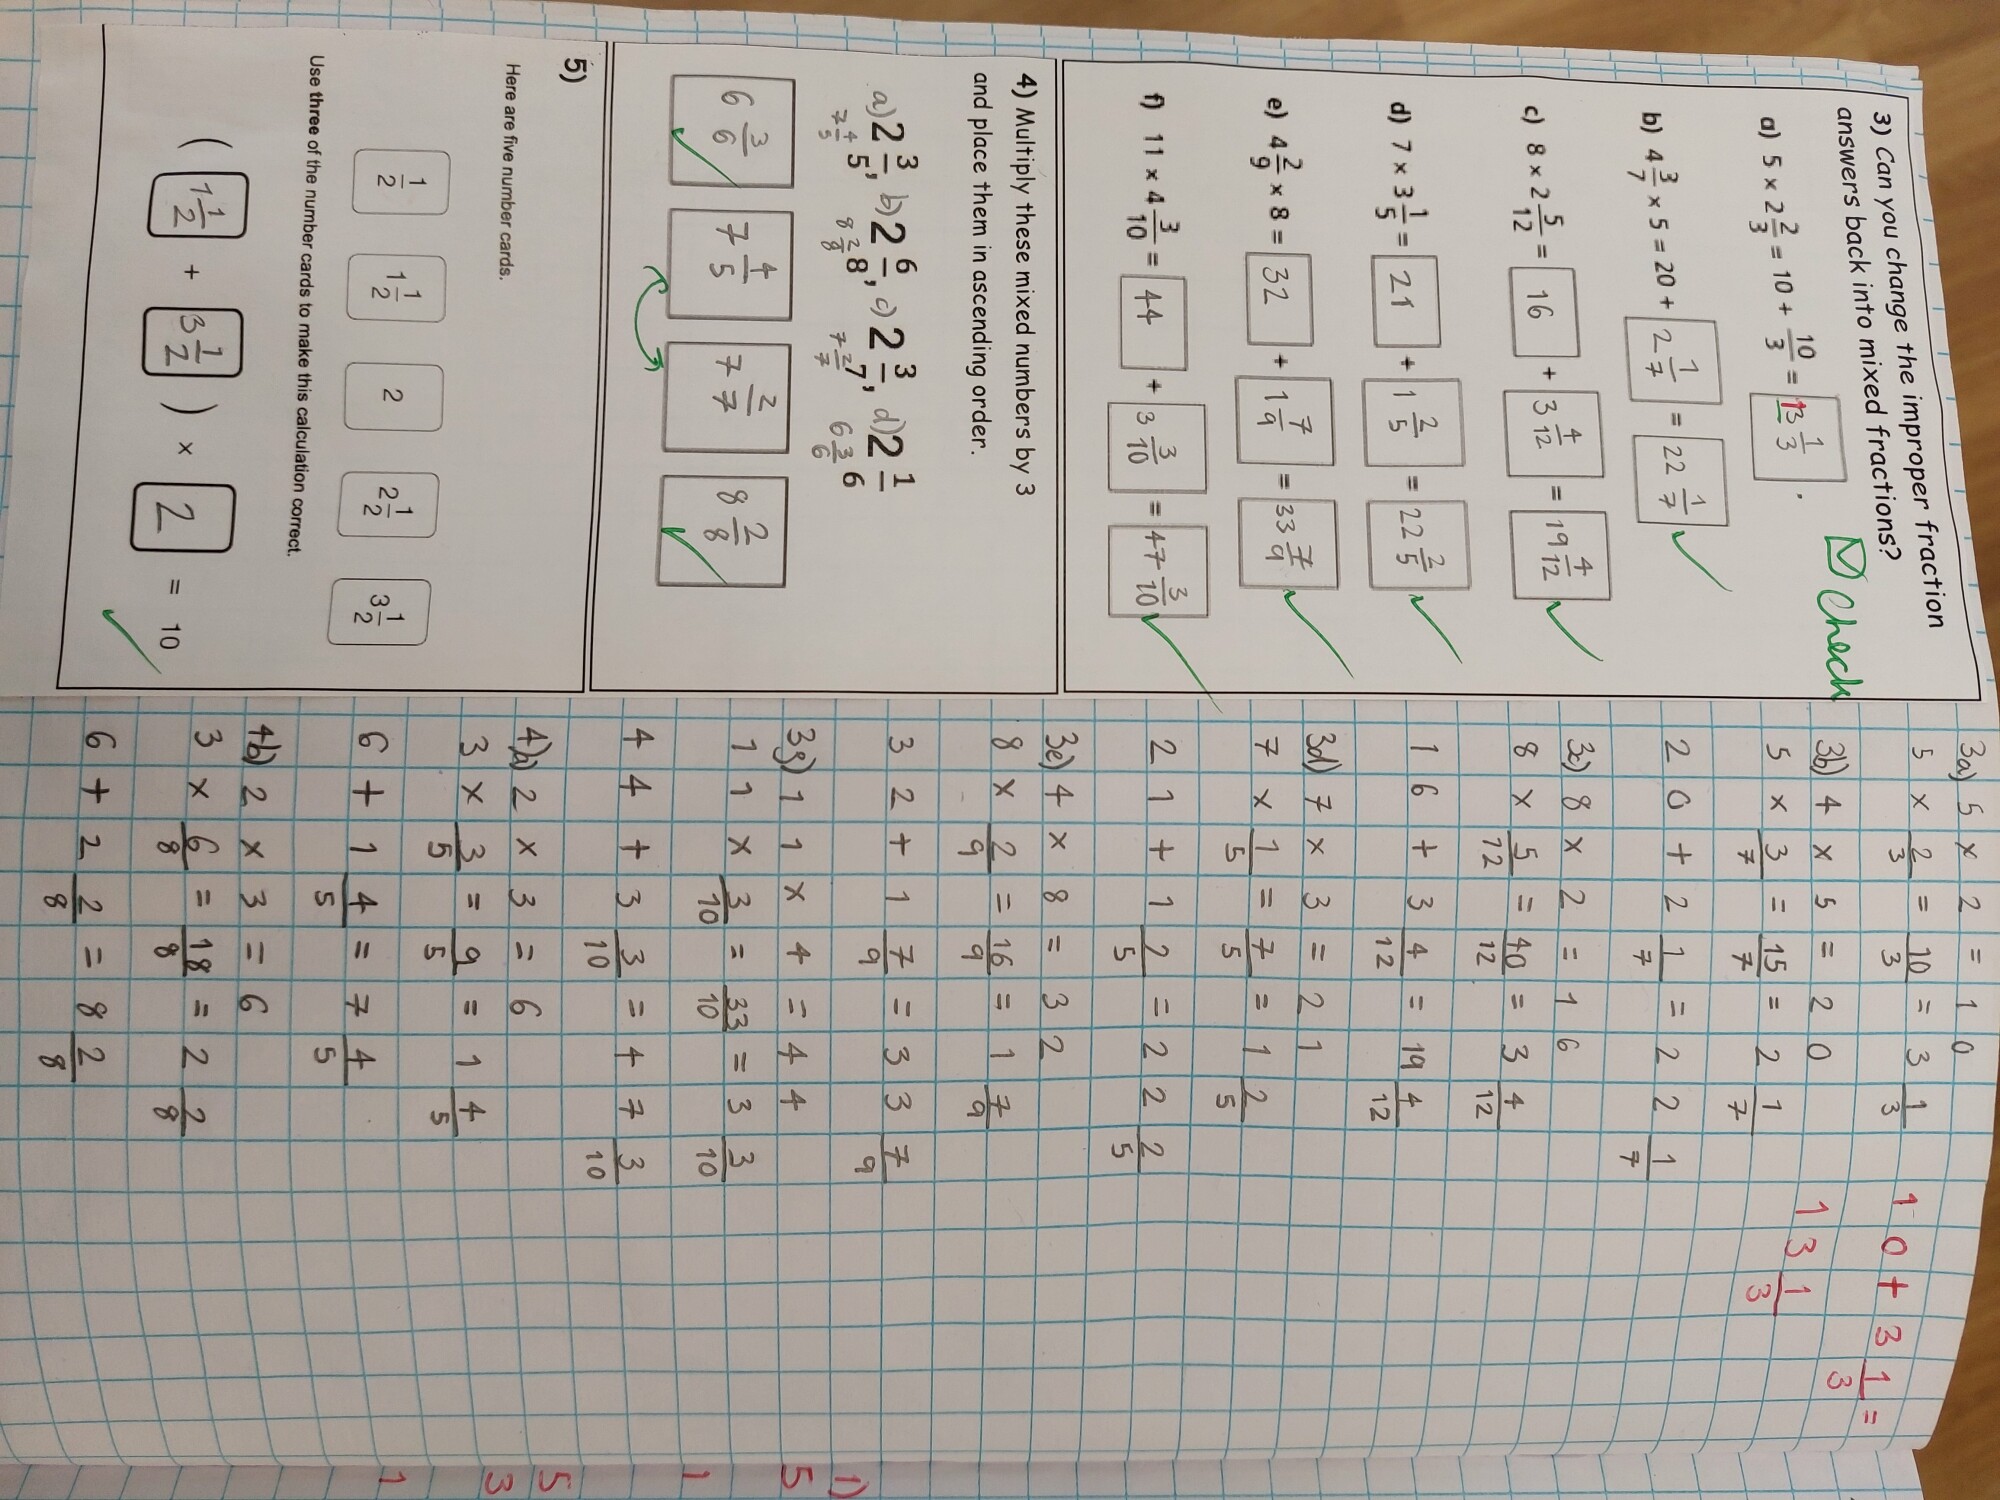 3) Can you change the improper fraction
answers back into mixed fractions?
☑ Check
a) 5 × 2 2/3 = 10 + 10/3 = 13 1/3 .
b) 4 3/7 × 5 = 20 + 2 1/7 = 22 1/7 ✓
c) 8 × 2 5/12 = 16 + 3 4/12 = 19 4/12 ✓
d) 7 × 3 1/5 = 21 + 1 2/5 = 22 2/5 ✓
e) 4 2/9 × 8 = 32 + 1 7/9 = 33 7/9 ✓
f) 11 × 4 3/10 = 44 + 3 3/10 = 47 3/10 ✓
4) Multiply these mixed numbers by 3
and place them in ascending order.
a) 2 3/5, b) 2 6/8, c) 2 3/7, d) 2 1/6
7 4/5 8 2/8 7 2/7 6 3/6
6 3/6 ✓ 7 4/5 7 2/7 8 2/8 ✓
5)
Here are five number cards.
1/2 1 1/2 2 2 1/2 3 1/2
Use three of the number cards to make this calculation correct.
( 1 1/2 + 3 1/2 ) × 2 = 10 ✓
3a) 5 × 2 = 10
5 × 2/3 = 10/3 = 3 1/3
10 + 3 1/3 =
13 1/3
3b) 4 × 5 = 20
5 × 3/7 = 15/7 = 2 1/7
20 + 2 1/7 = 22 1/7
3c) 8 × 2 = 16
8 × 5/12 = 40/12 = 3 4/12
16 + 3 4/12 = 19 4/12
3d) 7 × 3 = 21
7 × 1/5 = 7/5 = 1 2/5
21 + 1 2/5 = 22 2/5
3e) 4 × 8 = 32
8 × 2/9 = 16/9 = 1 7/9
32 + 1 7/9 = 33 7/9
11 × 4 = 44
11 × 3/10 = 33/10 = 3 3/10
44 + 3 3/10 = 47 3/10
2 × 3 = 6
3 × 3/5 = 9/5 = 1 4/5
6 + 1 4/5 = 7 4/5
4b) 2 × 3 = 6
3 × 6/8 = 18/8 = 2 2/8
6 + 2 2/8 = 8 2/8
1)
5
1
5
3
1